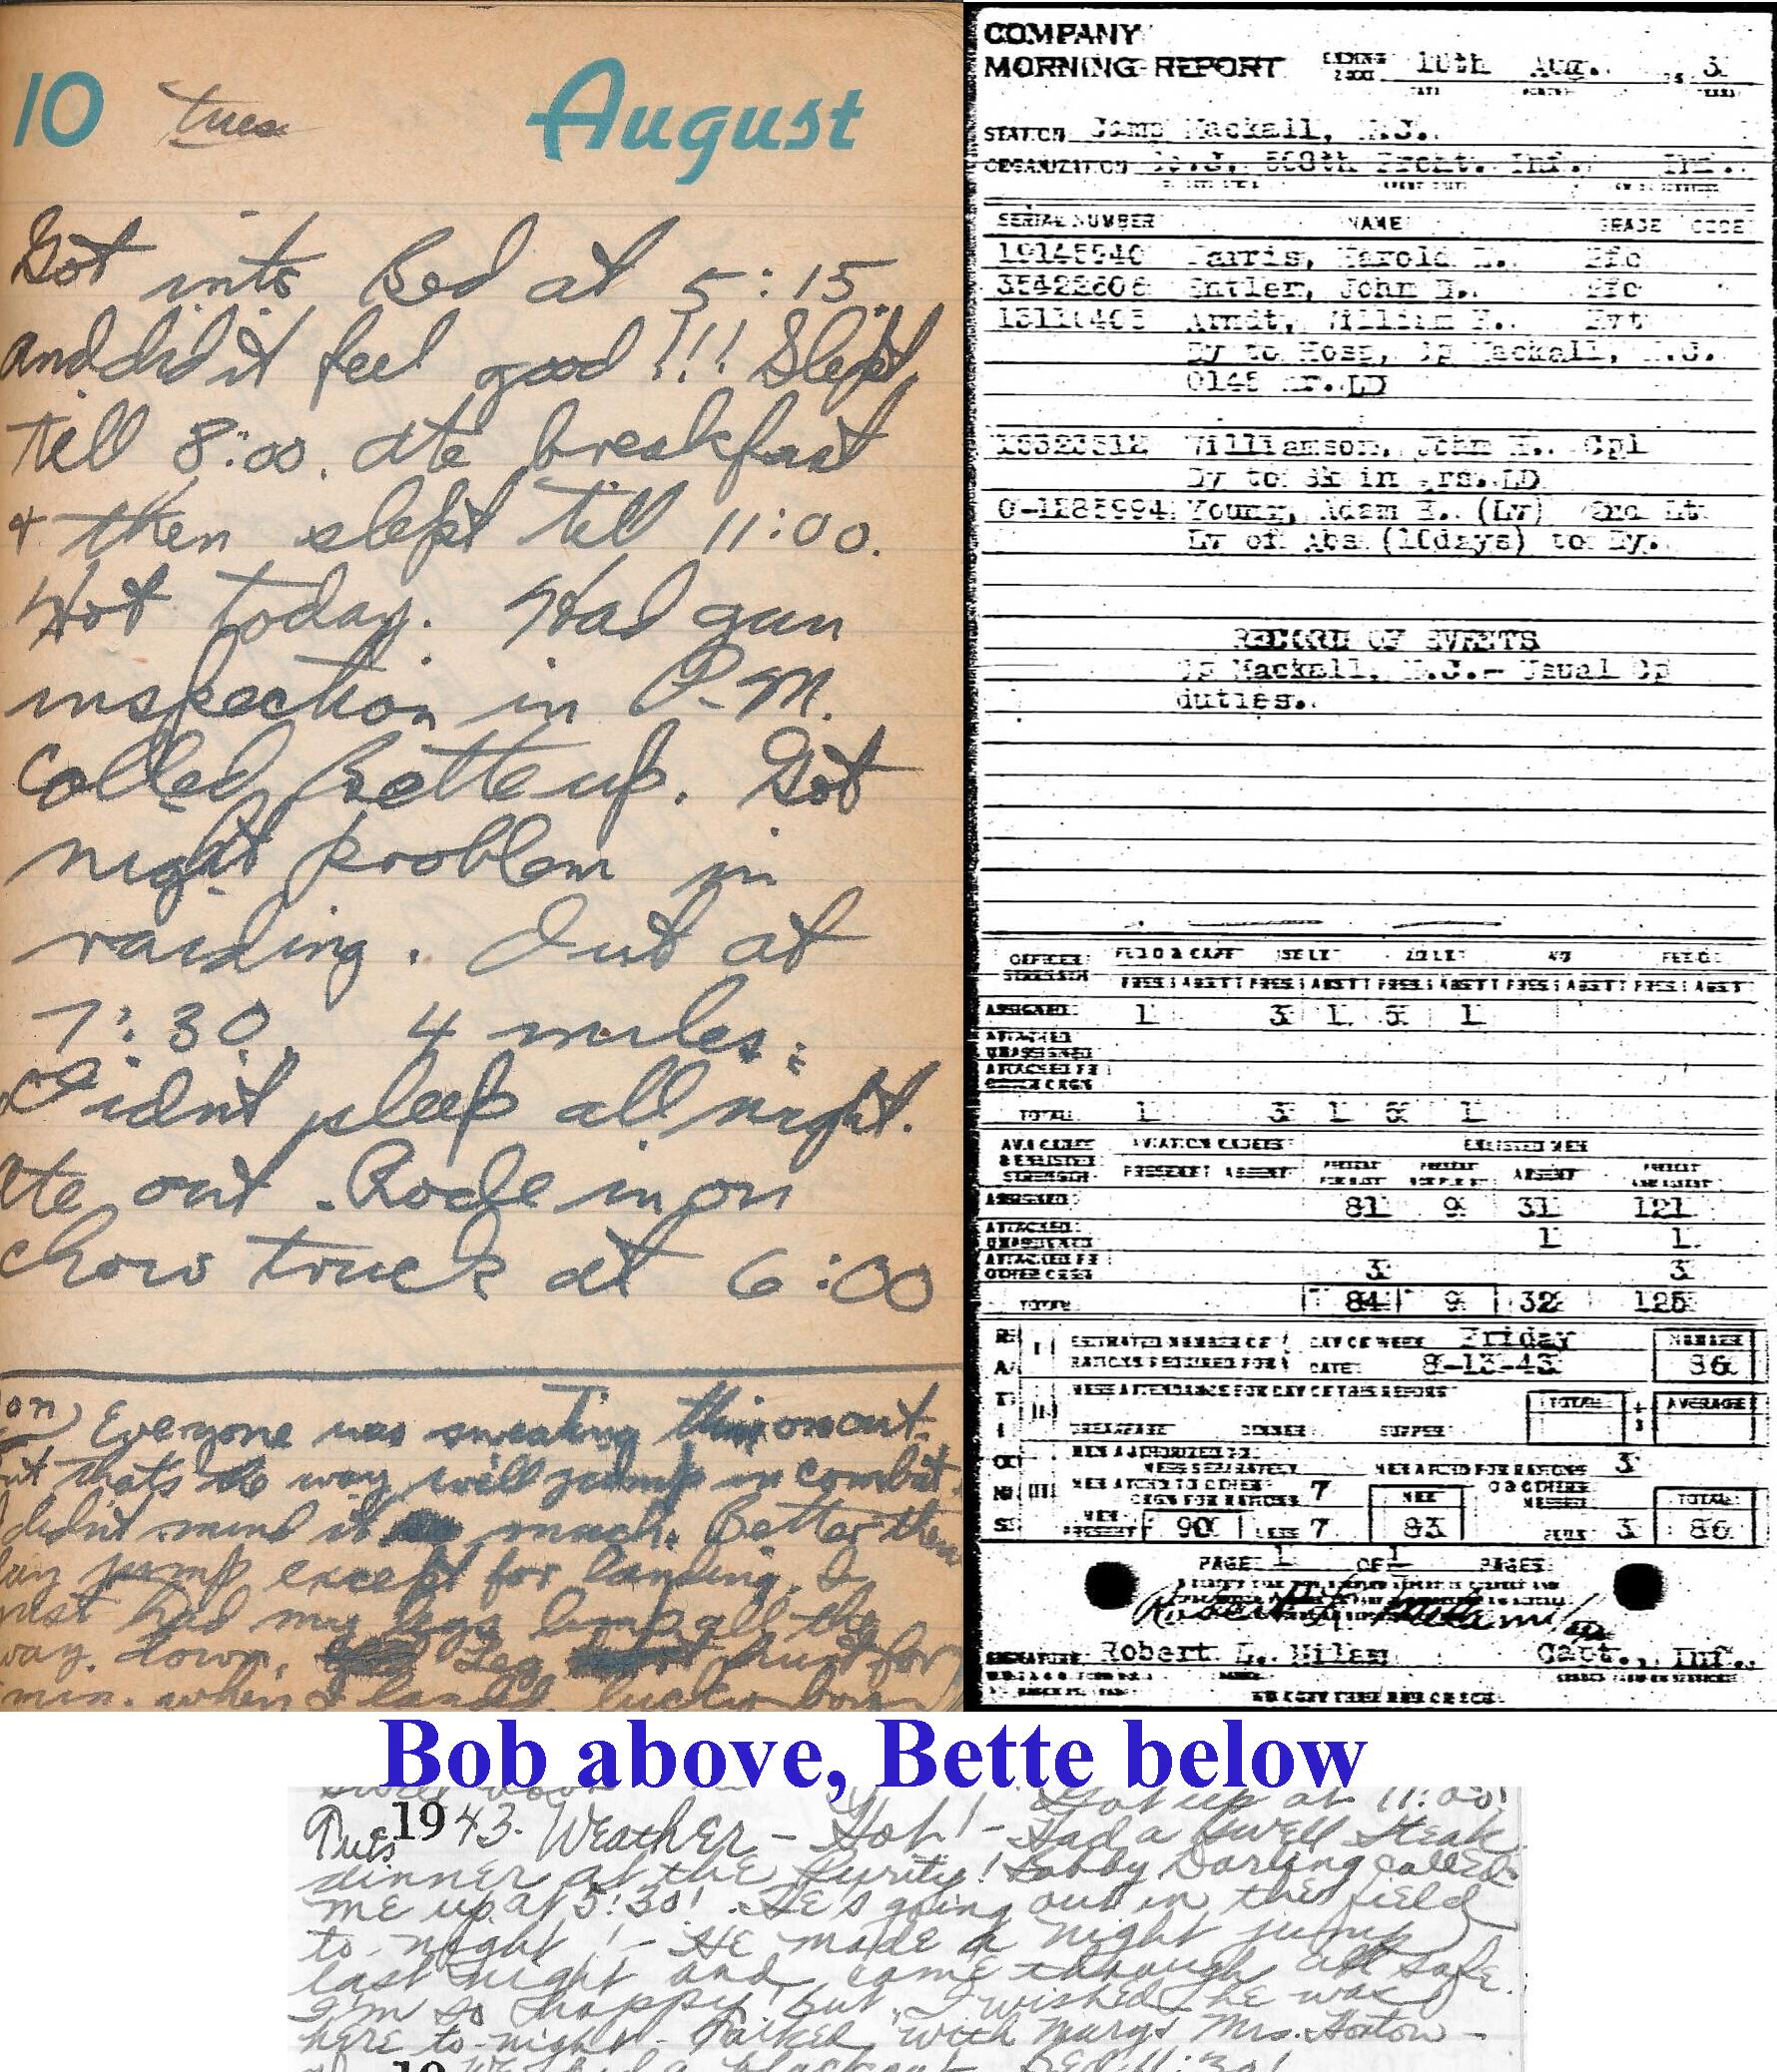 10 Tues August
Got into Bed at 5:15
and did it feel good!!! Slept
till 8:00. Ate breakfast
& then slept till 11:00.
Hot today. Had gun
inspection in P.M.
Called Bette up. Got
night problem in
raiding. Out at
7:30. 4 miles.
Didnt sleep all night.
Ate out. Rode in on
chow truck at 6:00
on) Everyone was sweating this one out.
thats the way we'll jump in combat.
didn't mind it so much. Better then
jump except for landing. I
just had my legs limp all the
way down. Leg hurt for
min. when I landed. lucky
COMPANY
MORNING REPORT ENDING 2400 10th Aug. 3
STATION Camp Mackall, N.C.
ORGANIZATION 508th Prcht. Inf. Inf.
SERIAL NUMBER NAME GRADE CODE
19145940 Harold L. Pfc
35422606 John Pfc
Arndt, William F. Pvt
Dy to Hosp, Cp Mackall, N.C.
0145 LD
Williamson, John H. Cpl
Dy to Sk in Qrs. LD
0-1285994 Young, Adam E. (Lv) 2nd Lt
Lv of Abs (10days) to Dy.
RECORD OF EVENTS
Cp Mackall, N.C.- Usual Cp
duties.
OFFICER STRENGTH FLD O & CAPT 1ST LT 2D LT WO FLT O
PRES ABST PRES ABST PRES ABST PRES ABST PRES ABST
ASSIGNED 1 3 1 5 1
ATTACHED UNASSIGNED
ATTACHED FR OTHER ORGN
TOTAL 1 3 1 5 1
AV CADET & ENLISTED STRENGTH AVIATION CADETS ENLISTED MEN
PRESENT ABSENT PRESENT FOR DUTY PRESENT NOT FOR DY ABSENT PRESENT AND ABSENT
ASSIGNED 81 9 31 121
ATTACHED UNASSIGNED 1 1
ATTACHED FR OTHER ORGN 3 3
TOTAL 84 9 32 125
I ESTIMATED NUMBER OF RATIONS REQUIRED FOR DAY OF WEEK Friday NUMBER
DATE 8-13-43 86
II MESS ATTENDANCE FOR DAY OF THIS REPORT TOTAL AVERAGE
BREAKFAST DINNER SUPPER
MEN AUTHORIZED TO
MESS SEPARATELY MEN ATCHD FOR RATIONS 3
III MEN ATCHD TO OTHER ORGN FOR RATIONS 7 NET TOTAL
MEN PRESENT 90 LESS 7 83 PLUS 3 86
PAGE 1 OF 1 PAGES
SIGNATURE Robert L. Milam Capt., Inf.
Bob above, Bette below
Got up at 11:00!
Tues 1943. Weather - Hot! - Had a swell steak
dinner at the Purity! Bobby Darling called
me up at 5:30! He's going out in the field
to-night! - He made a night jump
last night and came through all safe.
I'm so happy! but I wished he was
here to-night! - Talked with Marge Mrs. Horton -
19 We had a blackout - Bed 11:30!